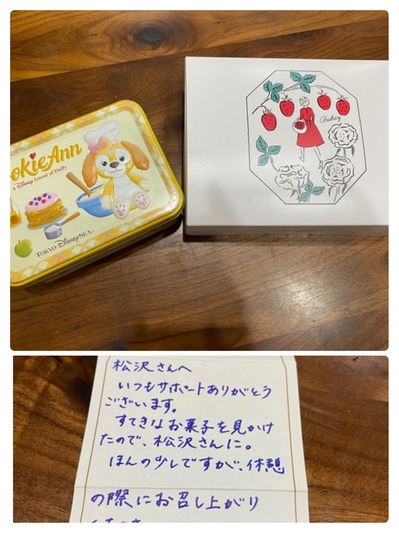 CookieAnn
a Disney friend of Duffy
TOKYO DisneySEA
Audrey
松沢さんへ
いつもサポートありがとう
ございます。
すてきなお菓子を見かけ
たので、松沢さんに。
ほんの少しですが、休憩
の際にお召し上がり